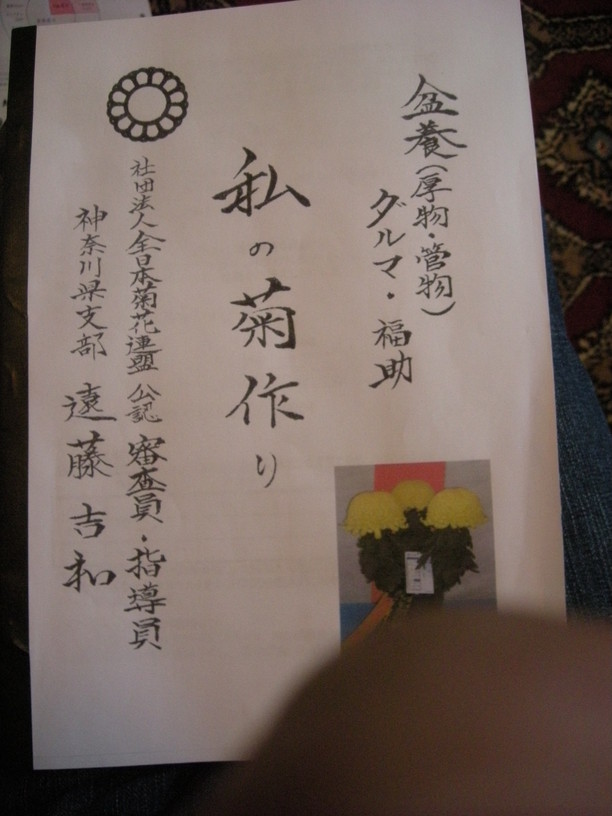 盆養(厚物・管物)
ダルマ・福助
私の菊作り
社団法人全日本菊花連盟 公認 審査員・指導員
神奈川県支部 遠藤吉和